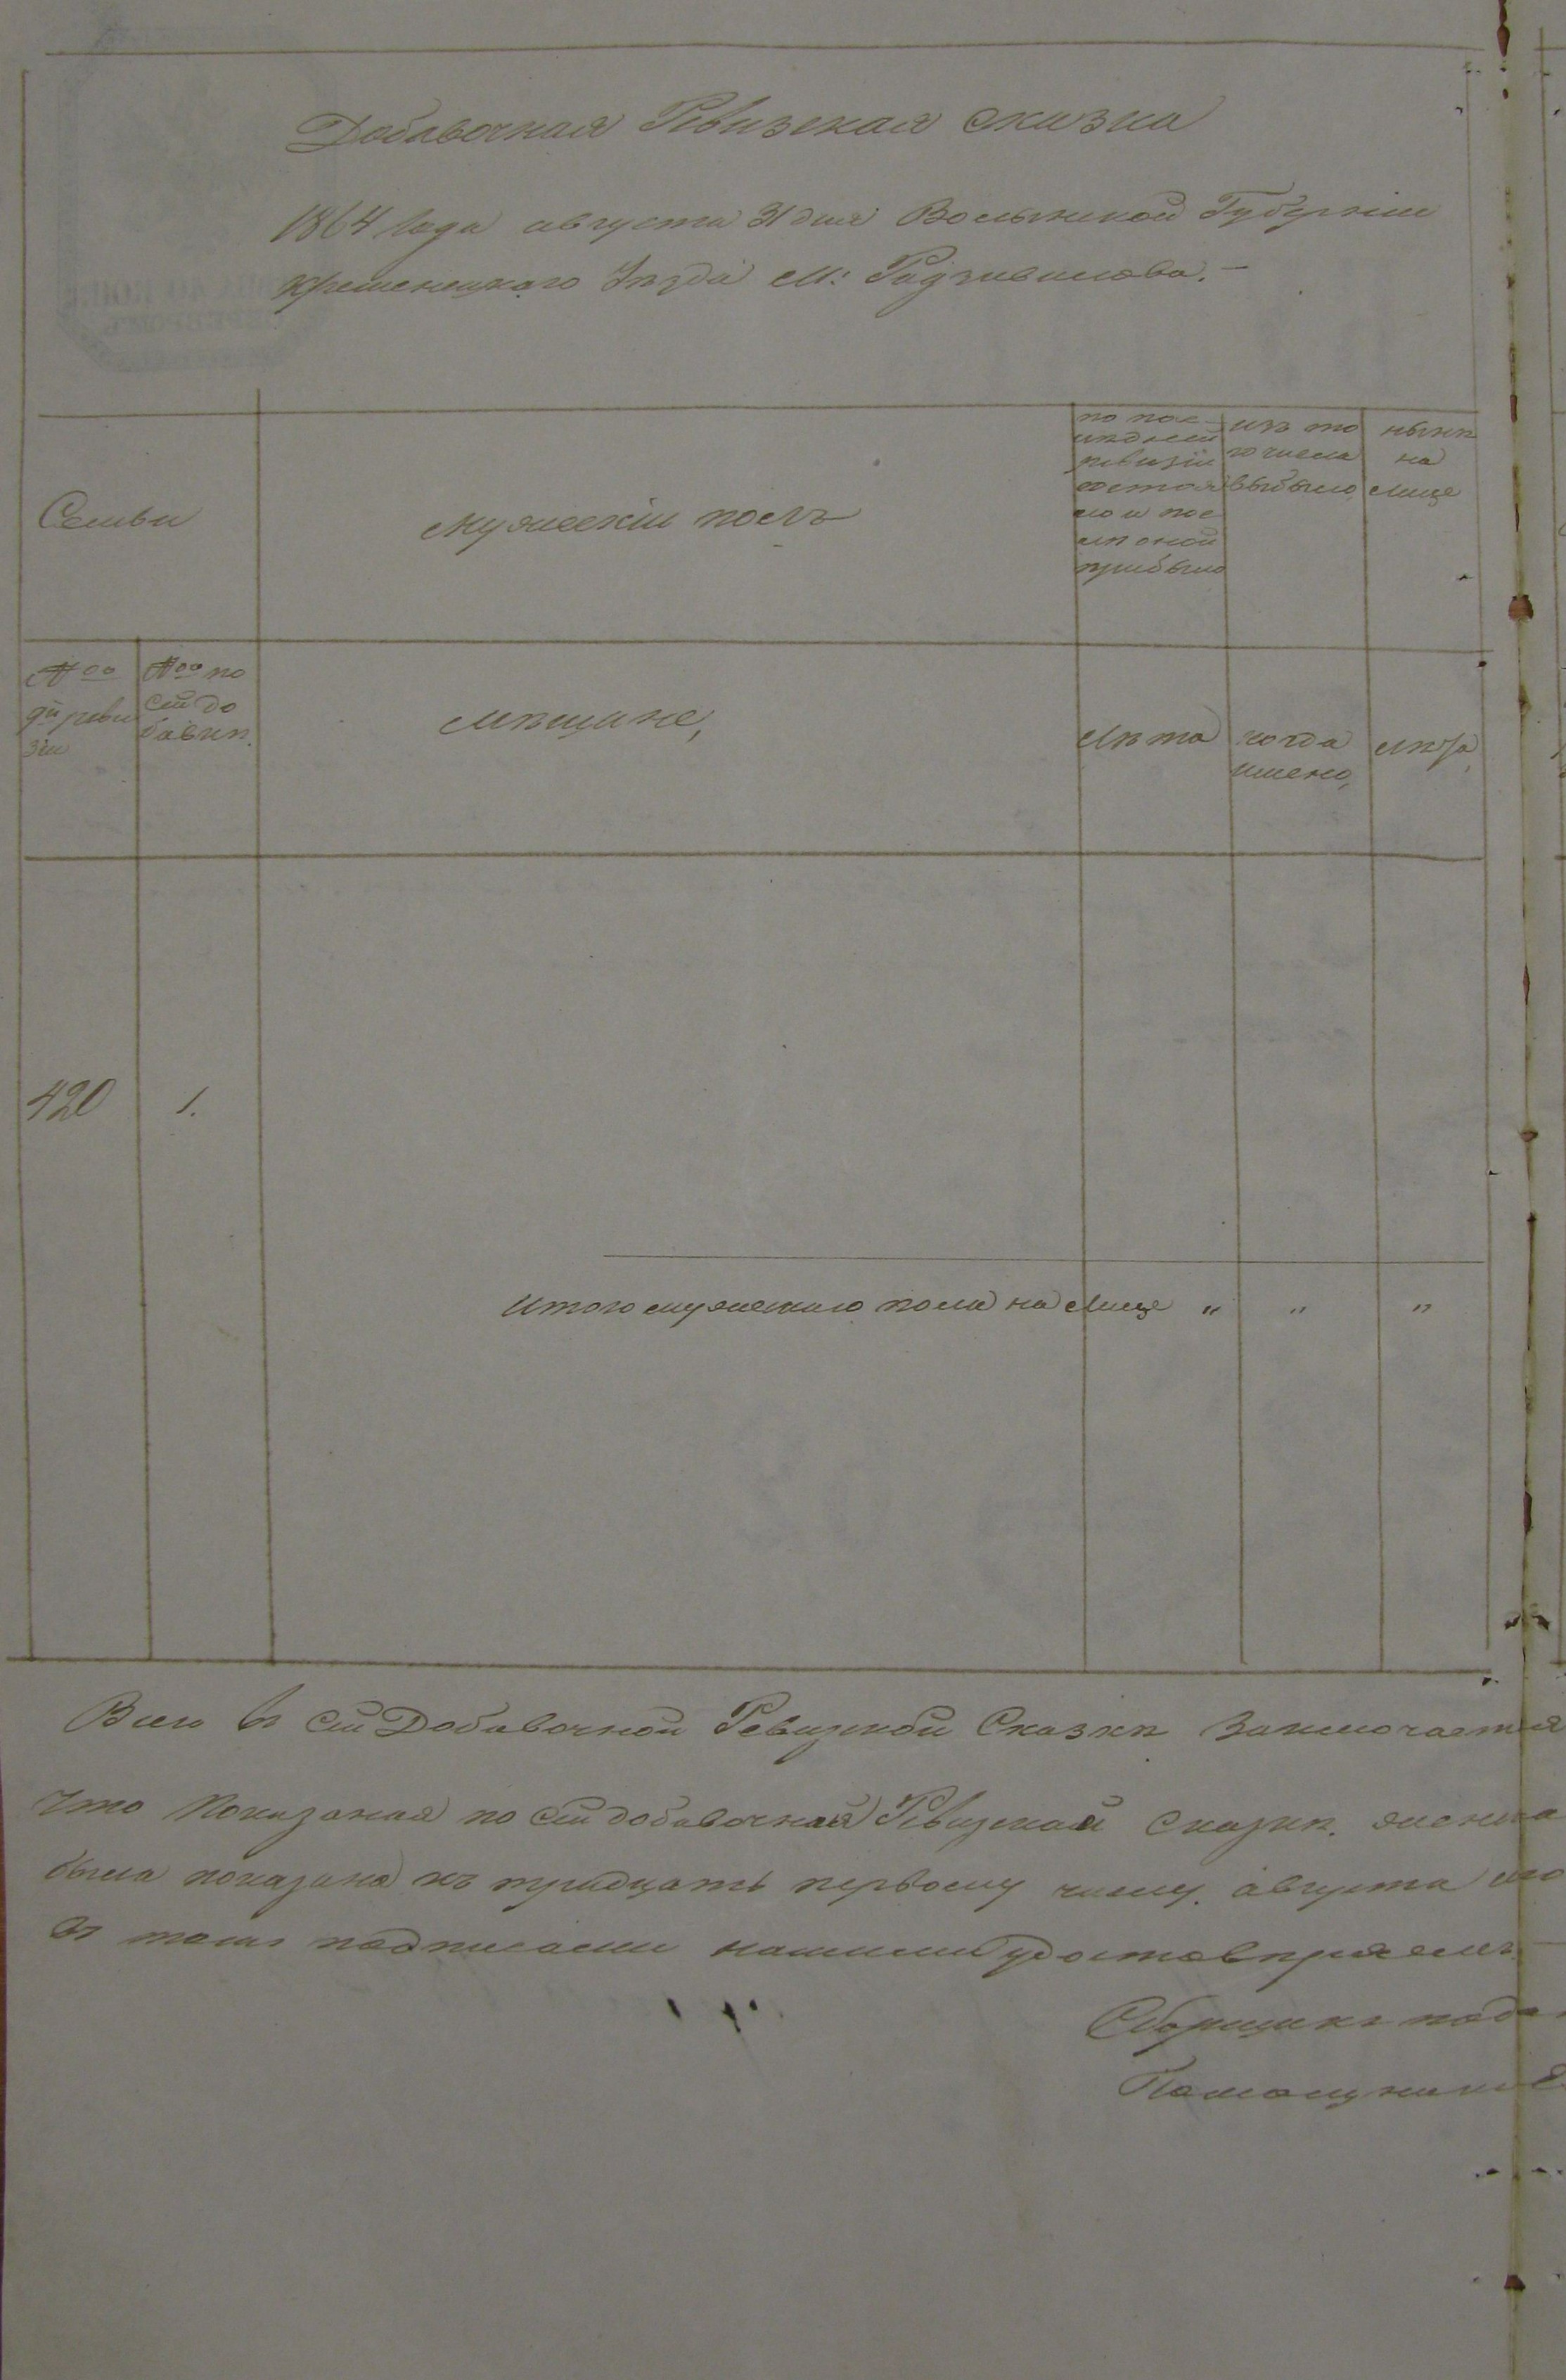 Добавочная Ревизская сказка
1864 Года августа 31 дня Волынской Губерніи
Кременецкаго Уѣзда М: Радзивилова.-
Семьи
мужескій полъ
по пос-
лѣдней
ревизіи
состоя
ло и пос
лѣ оной
прибыло
изъ то
го числа
выбыло
нынѣ
на
лице
№оо
9й реви
зіи
№оо по
сей до
бавкѣ.
мѣщане,
лѣта
когда
имено,
лѣта,
420 1.
Итого мужескаго пола на лице " " "
Всего въ сей Добавочной Ревизкой Сказкѣ Заключается
Что Показаная по сей добавочной Ревизской Сказкѣ. женска
была показана къ тридцать первому числу. августа
въ томъ подписами нашими удостовѣряемъ
Сборщикъ пода
Помощникъ Е